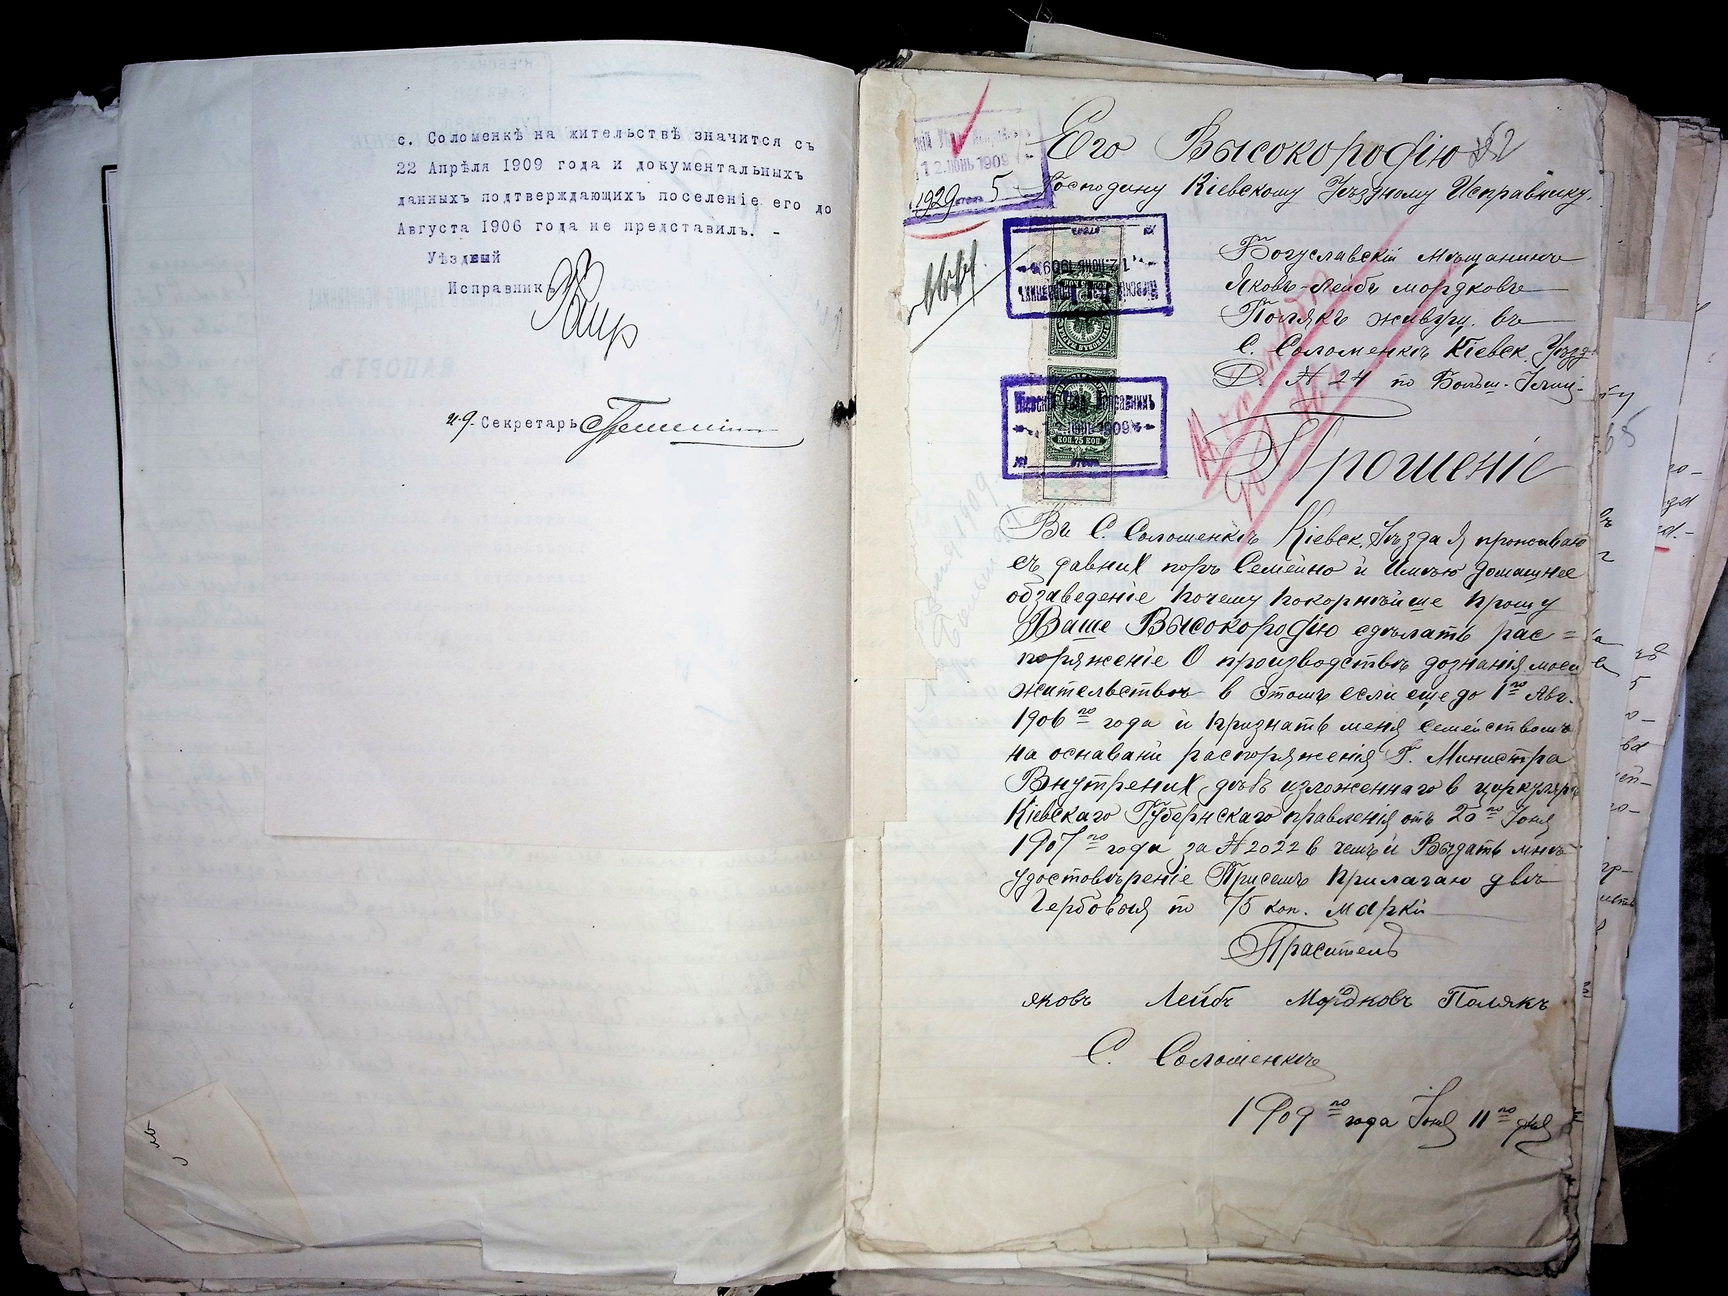 с. Соломенкѣ на жительствѣ значится съ
22 Апрѣля 1909 года и документальныхъ
данныхъ подтверждающихъ поселеніе его до
Августа 1906 года не представилъ. -
Уѣздный
Исправникъ
и.д. Секретарь
12 ІЮНЬ 1909
1929
5
Его Высокородію
52
Господину Кіевскому Уѣздному Исправнику.
Кіевскій Уѣзд. Исправникъ
12 ІЮНЬ 1909
Кіевскій Уѣзд. Исправникъ
12 ІЮНЬ 1909
КОП. 75 КОП
Богуславскій мѣщанинъ
Яковъ-Лейбъ мордковъ
Полякъ живущ. въ
С. Соломенкѣ Кіевск. Уѣзд.
Д. № 24 по Больш. Улиц.
Прошеніе
Въ С. Соломенкѣ Кіевск. Уѣзда Я проживаю
съ давних поръ Семейно и Имѣю домашнее
обзаведеніе Почему покорнѣйше прошу
Ваше Высокородію сдѣлать рас=
поряженіе О производствѣ дознанія моем
жительствѣ в этомъ если еще до 1го Авг.
1906го года и признать меня семействомъ
на основани распоряженія Г. Министра
Внутрених дѣлъ изложеннаго в циркулярѣ
Кіевскаго Губернскаго правленія отъ 20го Іюня
1907го года за № 2022 в чемъ и Выдать мнѣ
удостовѣреніе Присемъ прилагаю двѣ
Гербовыя по 75 коп. марки
Праситель
яковъ Лейбъ Мордковъ Полякъ
С. Соломенкѣ
1909го года Іюня 11го дня